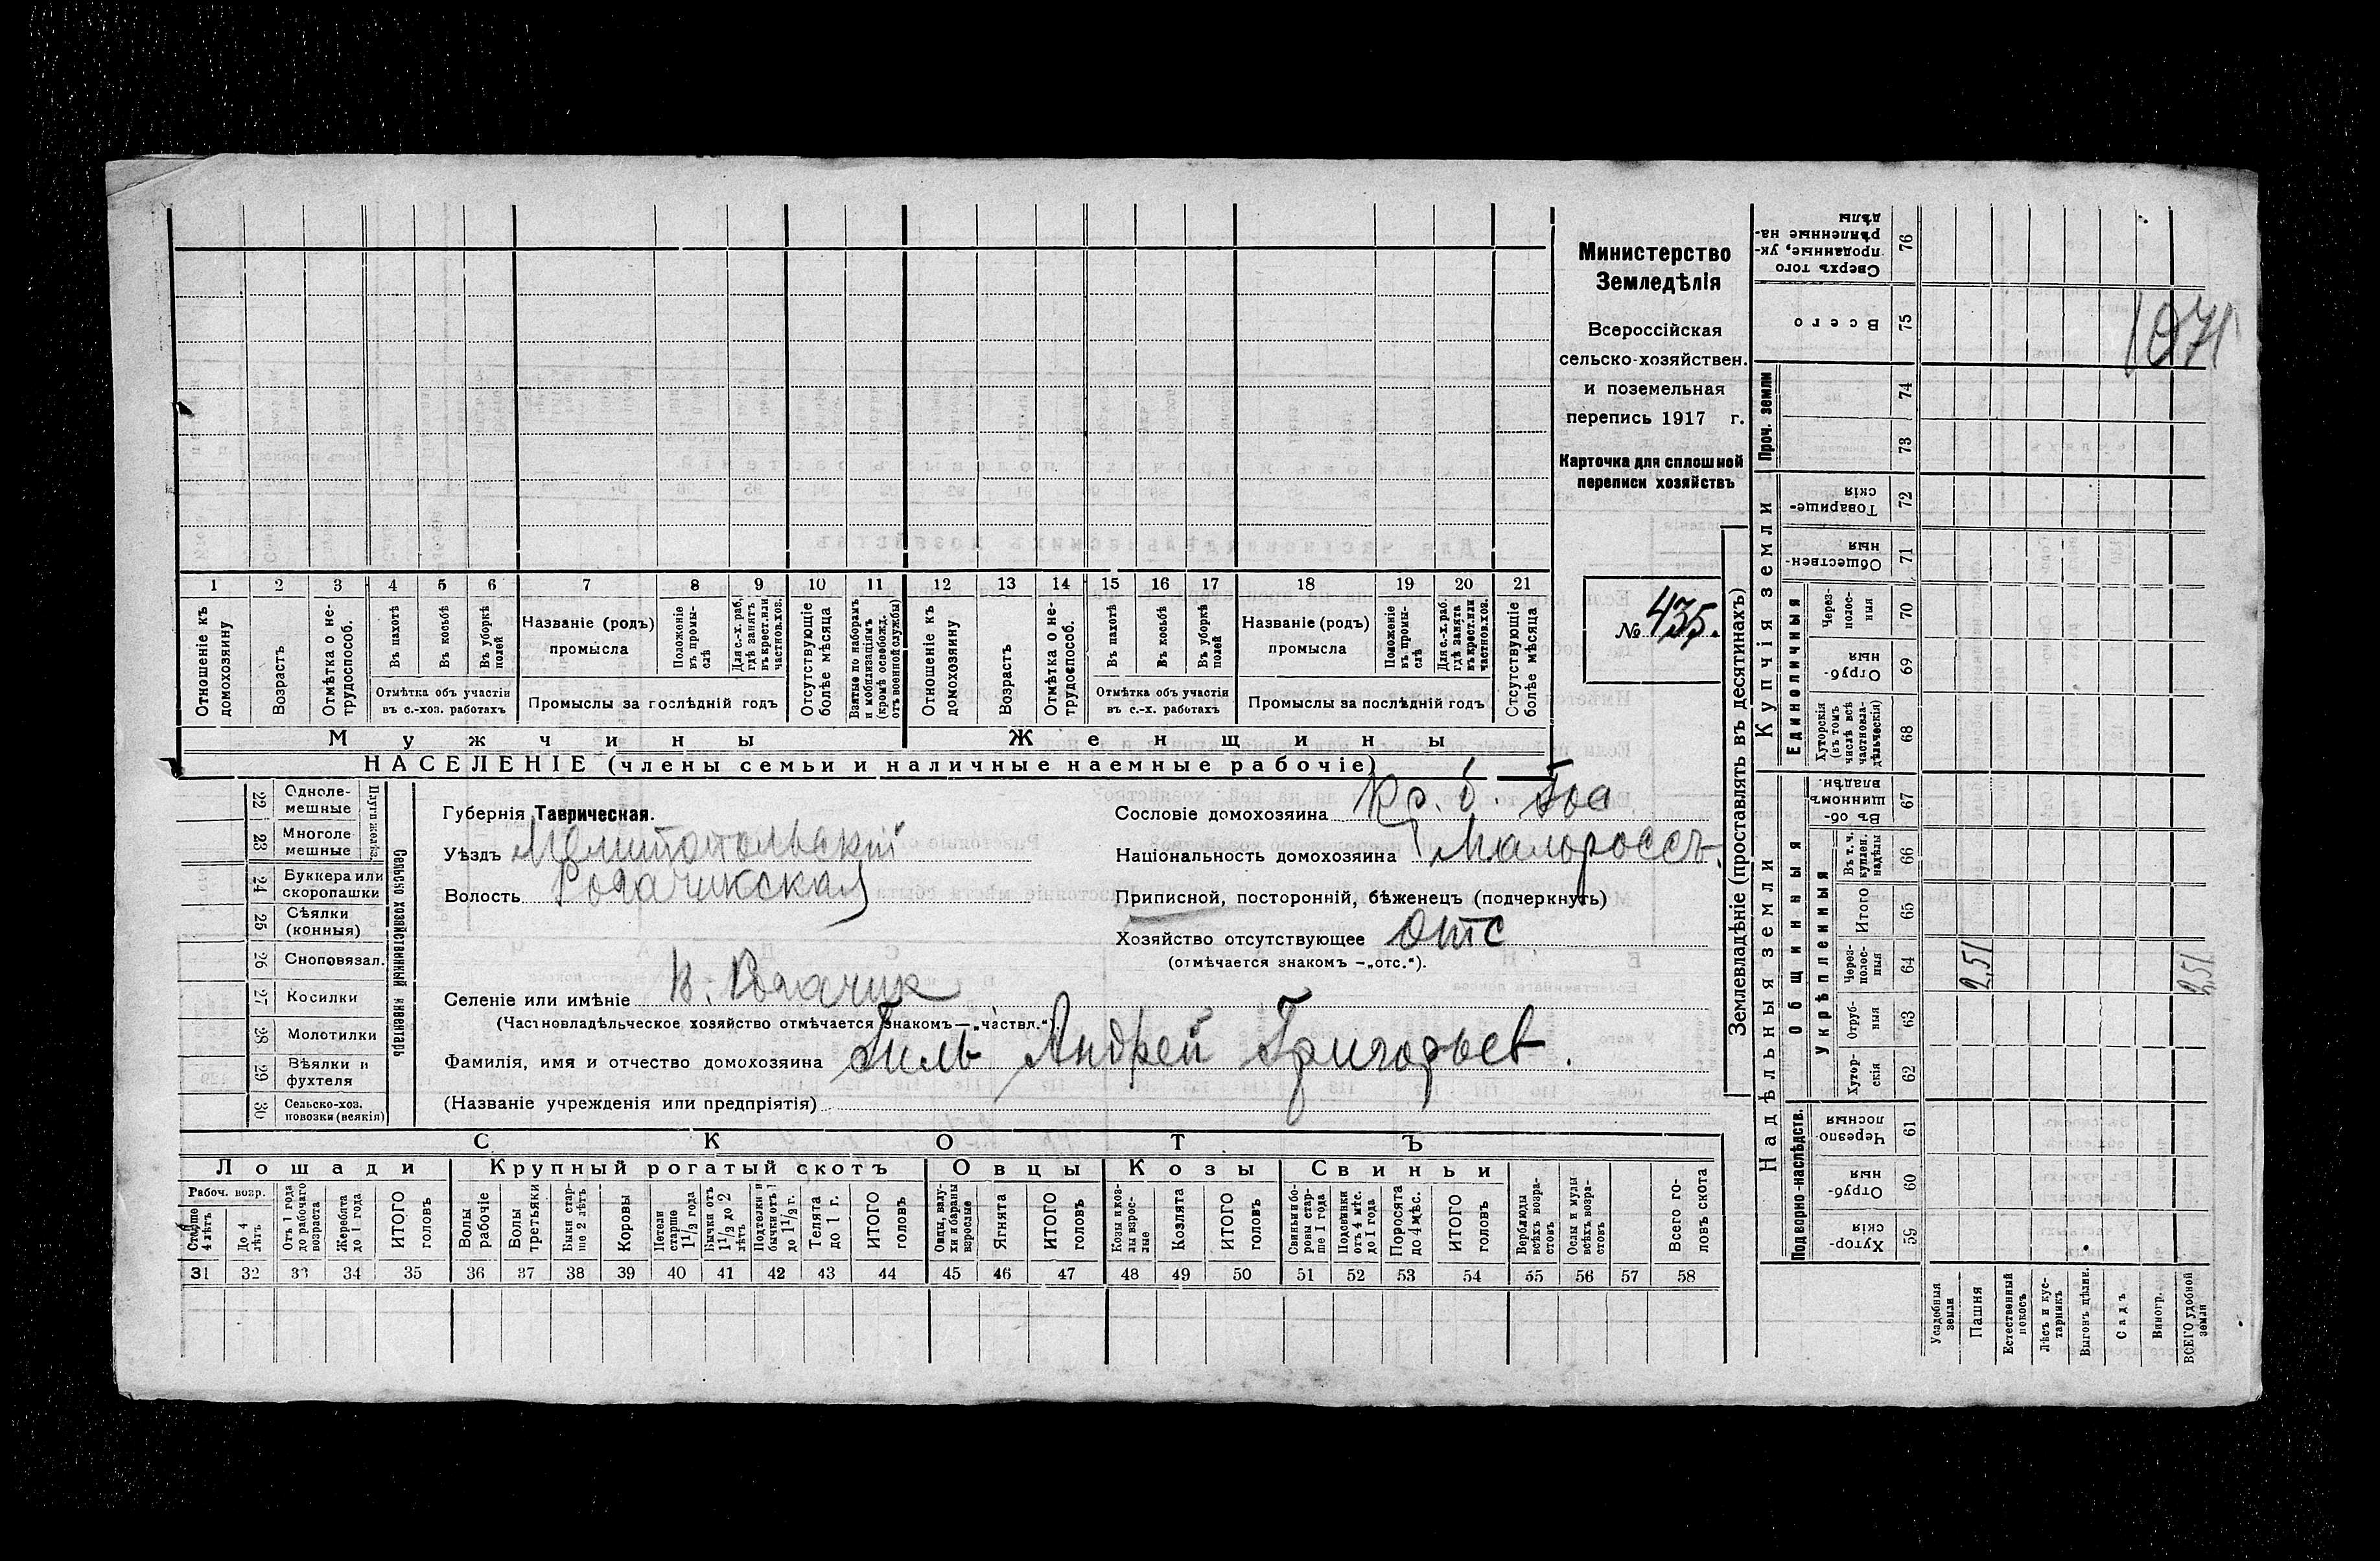 Министерство
Земледѣлія
Всероссійская
сельско-хозяйствен.
и поземельная
перепись 1917 г.
Карточка для сплошной
переписи хозяйствъ
№ 435.
1 2 3 4 5 6 7 8 9 10 11 12 13 14 15 16 17 18 19 20 21
Отношеніе къ домохозяину
Возрастъ
Отмѣтка о не-трудоспособ.
Въ пахотѣ
Въ косьбѣ
Въ уборкѣ полей
Отмѣтка объ участіи
въ с.-хоз. работахъ
Названіе (родъ)
промысла
Положеніе въ промы-слѣ
Для с.-х. раб. гдѣ занятъ въ крест. или частнов. хоз.
Промыслы за послѣдній годъ
Отсутствующіе болѣе мѣсяца
Взятые по наборамъ и мобилизаціямъ (кромѣ освобожд. отъ военной службы)
Отношеніе къ домохозяину
Возрастъ
Отмѣтка о не-трудоспособ.
Въ пахотѣ
Въ косьбѣ
Въ уборкѣ полей
Отмѣтка объ участіи
въ с.-х. работахъ
Названіе (родъ)
промысла
Положеніе въ промы-слѣ
Для с.-х. раб. гдѣ занята въ крест. или частнов. хоз.
Промыслы за послѣдній годъ
Отсутствующіе болѣе мѣсяца
Мужчины
Женщины
НАСЕЛЕНІЕ (члены семьи и наличные наемные рабочіе)
Сельско хозяйственный инвентарь
22 Одноле-мешные
23 Многоле мешные
24 Буккера или скоропашки
25 Сѣялки (конныя)
26 Сноповязал.
27 Косилки
28 Молотилки
29 Вѣялки и фухтеля
30 Сельско-хоз. повозки (всякія)
Губернія Таврическая.
Уѣздъ Мелитопольскій
Волость Рогачикская
Селеніе или имѣніе В. Рогачик
(Частновладѣльческое хозяйство отмѣчается знакомъ—„частвл.“
Фамилія, имя и отчество домохозяина Гиль Андрей Григорьев.
(Названіе учрежденія или предпріятія)
Сословіе домохозяина Кр. б.
Національность домохозяина Малороссъ.
Приписной, посторонній, бѣженецъ (подчеркнуть)
Хозяйство отсутствующее отс
(отмѣчается знакомъ —„отс.“).
СКОТЪ
Лошади
Крупный рогатый скотъ
Овцы
Козы
Свиньи
Рабоч. возр.
Старше 4 лѣтъ
До 4 лѣтъ.
Отъ 1 года до рабочаго возраста
Жеребята до 1 года
ИТОГО головъ
Волы рабочіе
Волы третьяки
Быки стар-ше 2 лѣтъ
Коровы
Нетели старше 1 1/2 года
Бычки отъ 1 1/2 до 2 лѣтъ
Подтелки и бычки отъ 1 до 1 1/2 г.
Телята до 1 г.
ИТОГО головъ
Овцы, валу-хи и бараны взрослые
Ягнята
ИТОГО головъ
Козы и коз-лы взрос-лые
Козлята
ИТОГО головъ
Свиньи и бо-ровы стар-ше 1 года
Подсвинки отъ 4 мѣс. до 1 года
Поросята до 4 мѣс.
ИТОГО головъ
Верблюды всѣхъ возра-стовъ
Ослы и мулы всѣхъ возра-стовъ
Всего го-ловъ скота
31 32 33 34 35 36 37 38 39 40 41 42 43 44 45 46 47 48 49 50 51 52 53 54 55 56 57 58
Землевладѣніе (проставлять въ десятинахъ)
Купчія земли
Надѣльныя земли
Проч. земли
Единоличныя
Общинныя
Укрѣпленныя
Подворно-наслѣдств.
76 Сверхъ того проданные, ук-рѣпленные на-дѣлы
75 Всего
74
73
72 Товарище-скія
71 Обществен-ныя
70 Через-полос-ныя
69 Отруб-ныя
68 Хуторскія (въ томъ числѣ всѣ частновла-дѣльческія)
67 Въ об-щинномъ владѣн.
66 Въ т. ч. куплен. надѣлы
65 Итого
64 Через-полос-ныя 2,51 2,51
63 Отруб-ныя
62 Хутор-скія
61 Черезпо-лосныя
60 Отруб-ныя
59 Хутор-скія
Усадебныя земли
Пашня
Естественный покосъ
Лѣсъ и кус-тарникъ
Выгонъ цѣлин.
Садъ
Виногр.
ВСЕГО удобной земли
1071